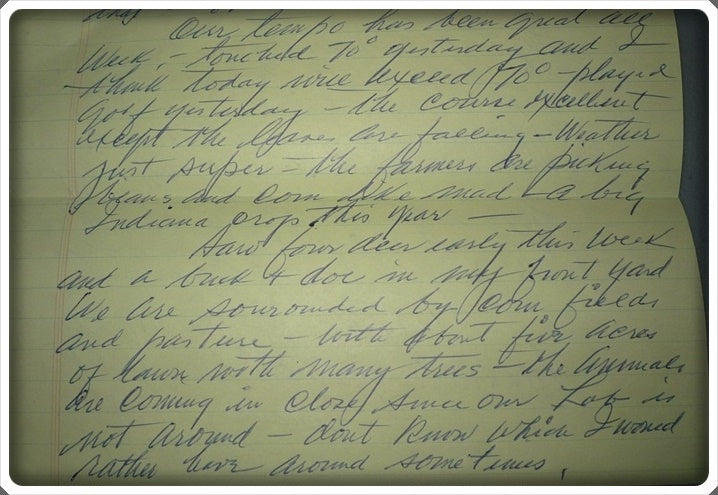 Our temps has been great all
Week, - touched 70° yesterday and I
think today will exceed 70° - played
golf yesterday - the course excellent
except the leaves are falling - Weather
just super - the farmers are picking
beans and corn like mad - a big
Indiana crops this year -
Saw four deer early this week
and a buck + doe in my front yard
We are sourounded by corn fields
and pasture - with about five acres
of lawn with many trees - the animals
are coming in close since our Lab is
not around - dont know which I would
rather have around sometimes.